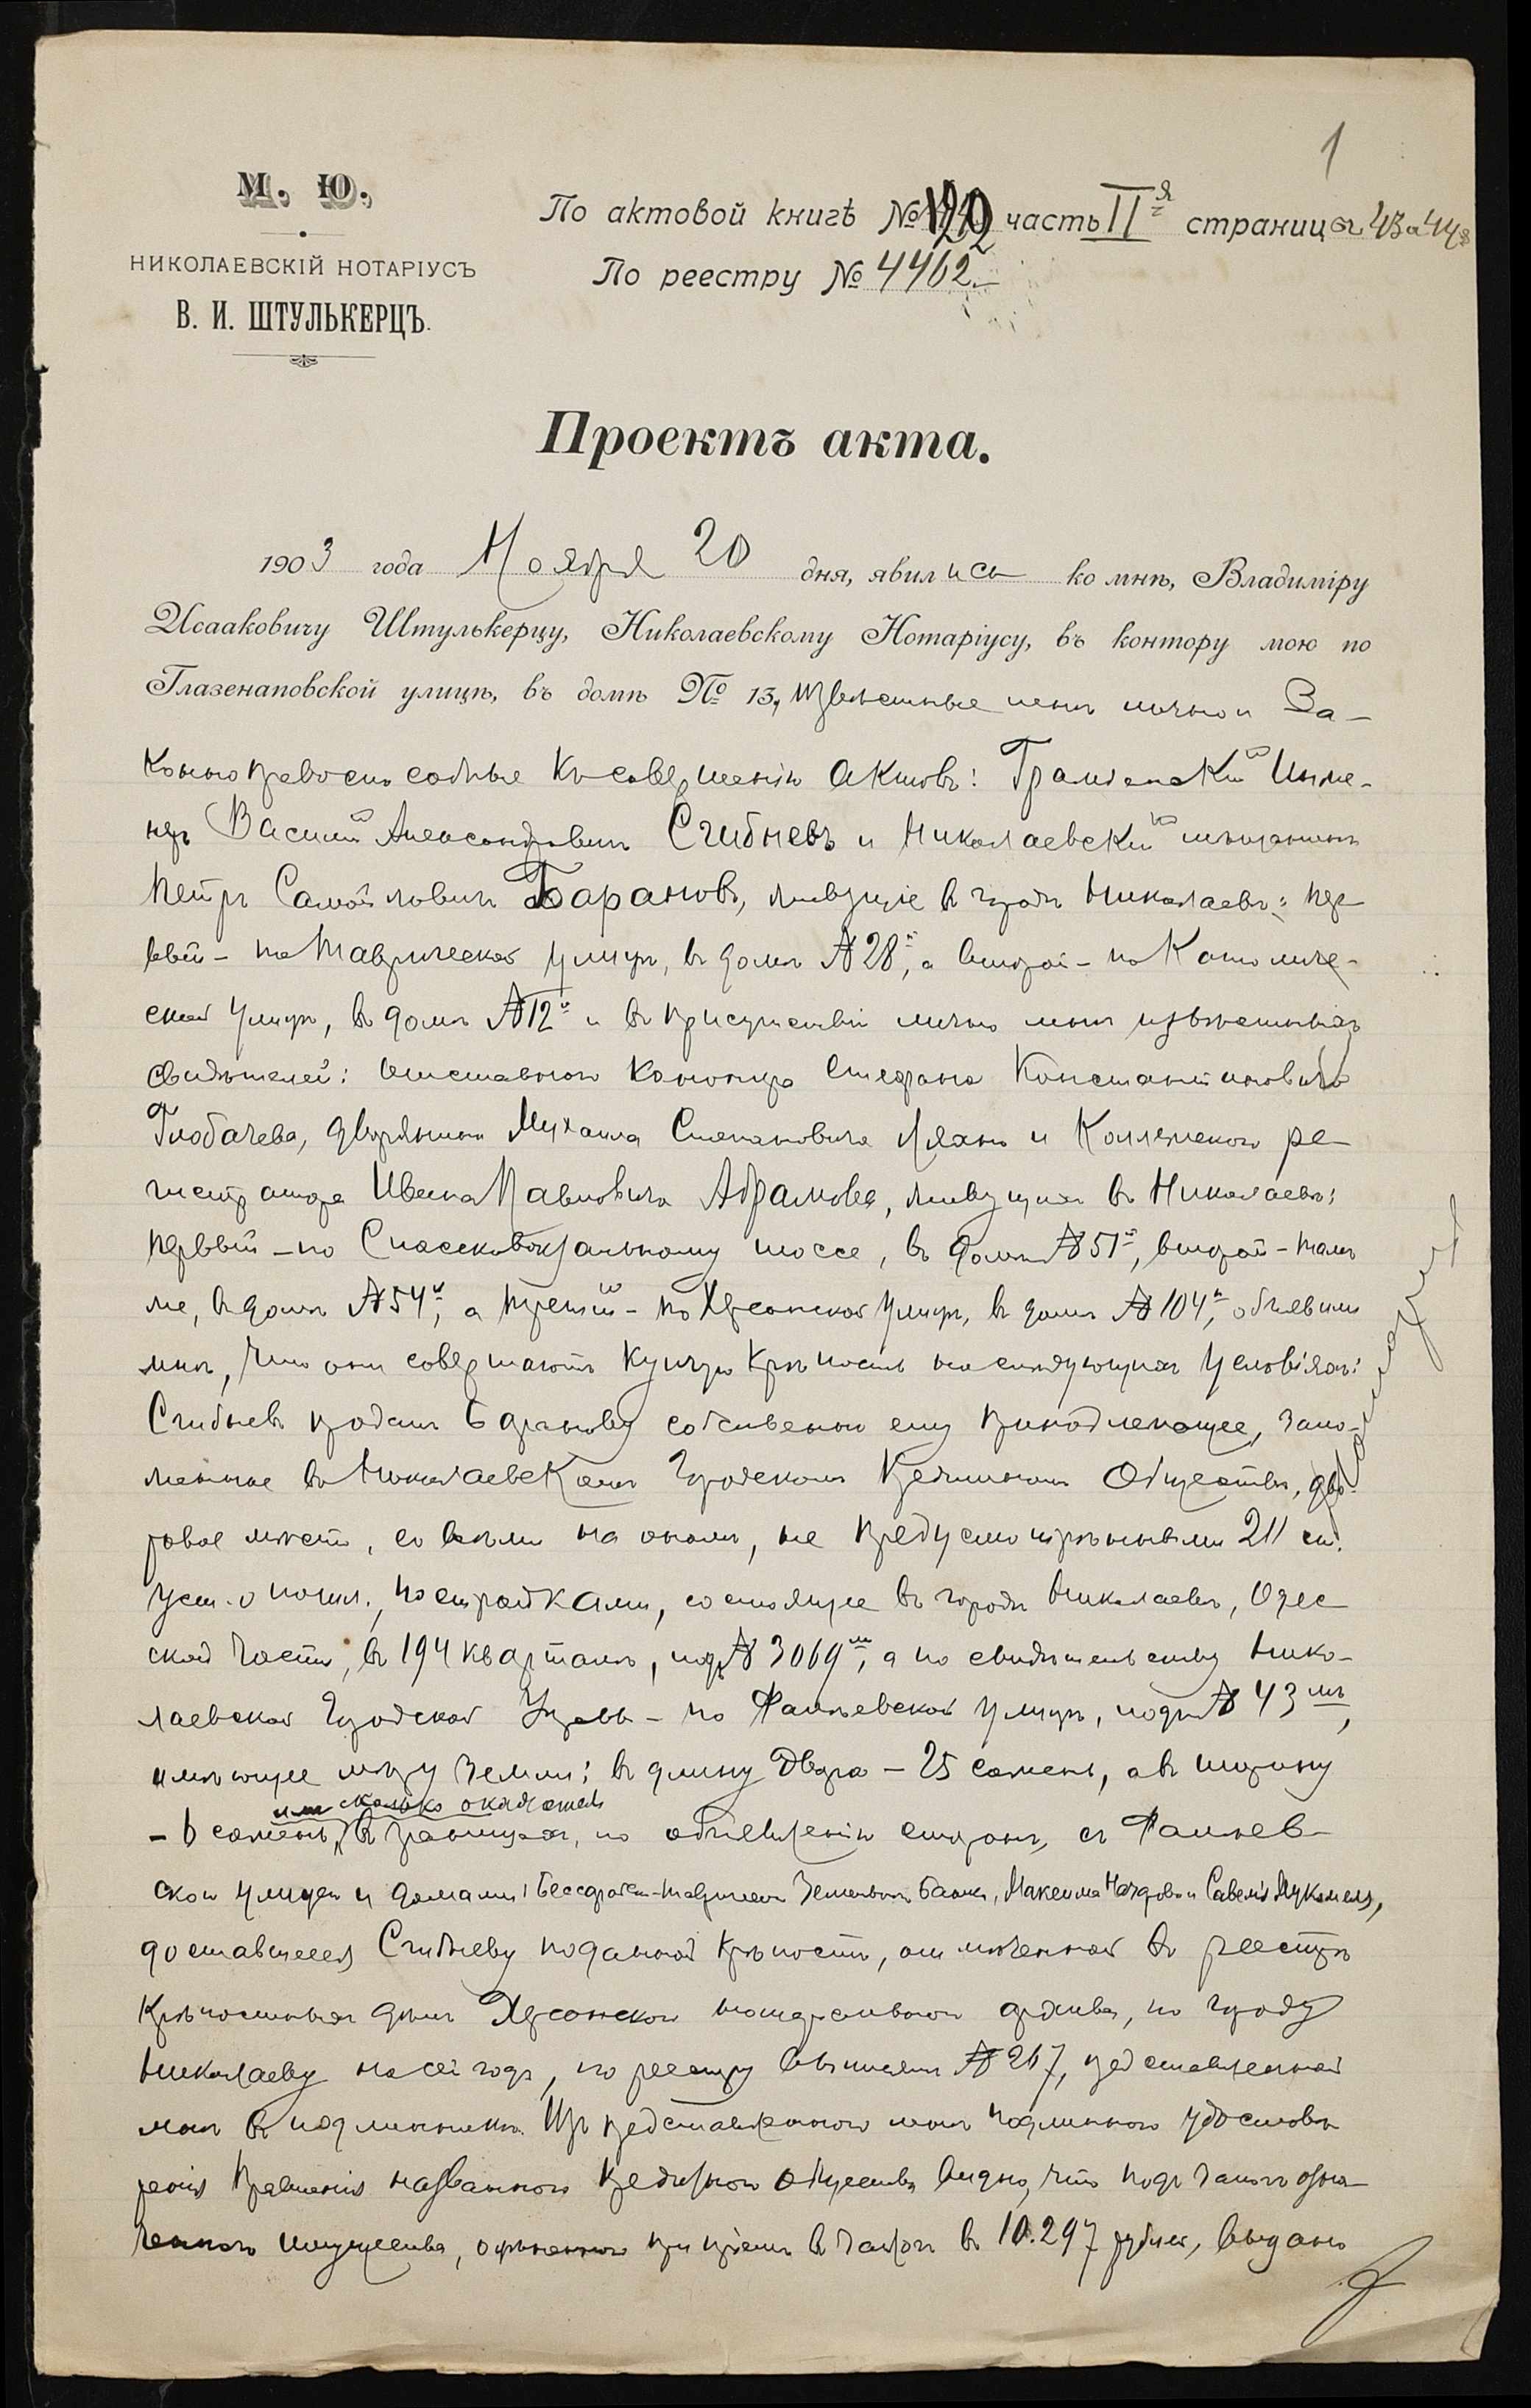 1
М. Ю.
НИКОЛАЕВСКІЙ НОТАРІУСЪ
В. И. ШТУЛЬКЕРЦЪ.
По актовой книгѣ № часть IIя страница 43 и 44
По реестру № 4462.
Проектъ акта.
1903 года Ноября 20 дня, явились ко мнѣ, Владиміру
Исааковичу Штулькерцу, Николаевскому Нотаріусу, въ контору мою по
Глазенаповской улицѣ, въ домѣ № 13, извѣстные мнѣ лично и За-
коннoправоспособные къ совершенію актовъ: Гражданскій Инже-
неръ Василій Александровичъ Сгибневъ и Николаевскій мѣщанинъ
Петръ Самойловичъ Барановъ, живущіе въ городѣ Николаевѣ: пер-
вый – по Таврической улицѣ, въ домѣ № 28й, а второй – по Католиче-
ской улицѣ, въ домѣ № 12й и въ присутствіи лично мнѣ извѣстныхъ
свидѣтелей: отставного Стефана Константиновича
Глобачева, дворянина Михаила Степановича Ляхно и Коллежскаго ре-
гистратора Ивана Павловича Абрамова, живущихъ въ Николаевѣ:
первый – по Спассковокзальному шоссе, въ домѣ № 51й, второй – тамъ
же, въ домѣ № 54й, а третій – по Херсонской улицѣ, въ домѣ № 104й, объявили
мнѣ, что они совершаютъ купчую крѣпость на слѣдующихъ условіяхъ:
Сгибневъ продалъ Баранову собственно ему принадлежащее, зало-
женное въ Николаевскомъ Городскомъ Кредитномъ Обществѣ, дво-
ровое мѣсто, со всѣми на ономъ, не предусмотрѣнными 211 ст.
Уст. о пошл., постройками, состоящее въ городѣ Николаевѣ, Одес-
ской части, въ 194 кварталѣ, подъ № 3069мъ, а по свидѣтельству Нико-
лаевской Городской Управы – по Фалѣевской улицѣ, подъ № 43мъ,
имѣющее мѣру земли: въ длину двора – 25 сажень, а въ ширину
или сколько окажется
– 6 сажень, въ границахъ, по объявленію сторонъ, съ Фалѣев-
ской улицей и домами: Бессарабско-Таврическаго Земельнаго Банка, Максима и Савелія
доставшееся Сгибневу по данной крѣпости, отмѣченной въ реестрѣ
крѣпостныхъ дѣлъ Херсонскаго нотаріальнаго архива, по городу
Николаеву на сей годъ, по реестру № 267, представленной
мнѣ въ подлинникѣ. Изъ представленнаго мнѣ подлиннаго удостовѣ-
ренія Правленія названнаго Кредитнаго Общества видно, что подъ залогъ озна-
ченнаго имущества, оцѣненнаго при пріемѣ въ залогъ въ 10.297 рублей, выдано